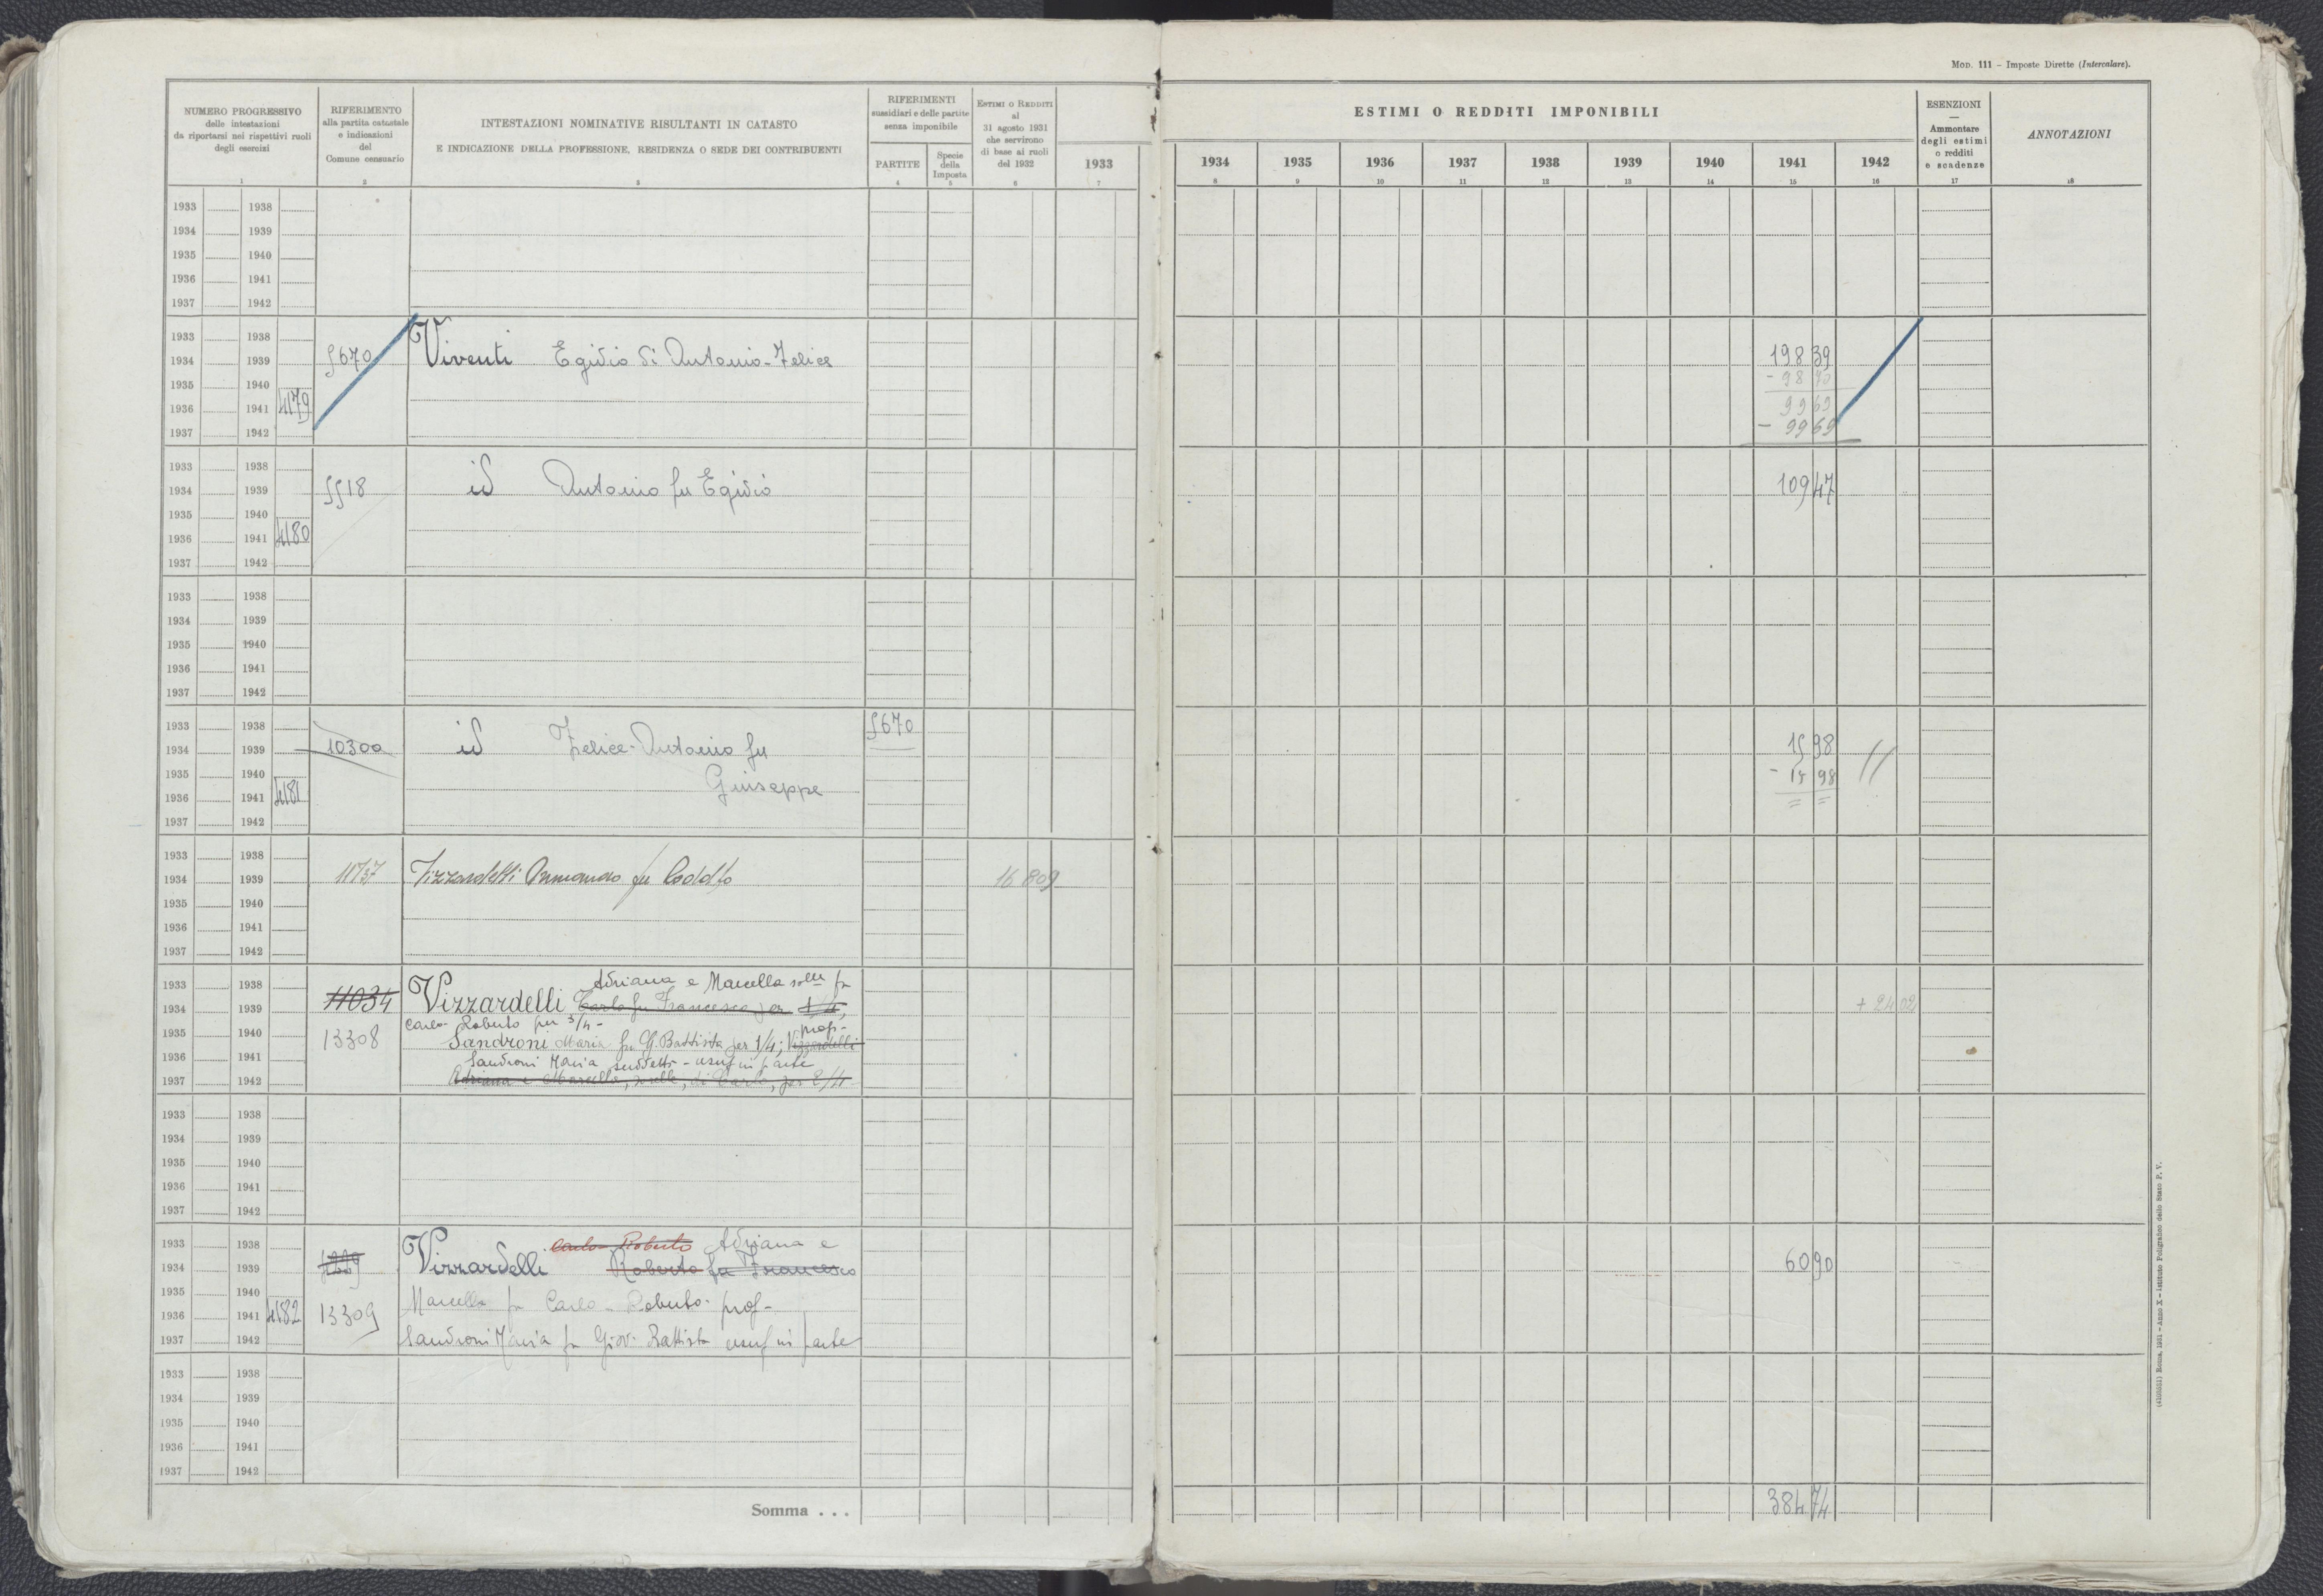 MOD. 111 - Imposte Dirette (Intercalare).
NUMERO PROGRESSIVO
delle intestazioni
da riportarsi nei rispettivi ruoli
degli esercizi
1
RIFERIMENTO
alla partita catastale
e indicazioni
del
Comune censuario
2
INTESTAZIONI NOMINATIVE RISULTANTI IN CATASTO
E INDICAZIONE DELLA PROFESSIONE, RESIDENZA O SEDE DEI CONTRIBUENTI
3
RIFERIMENTI
sussidiari e delle partite
senza imponibile
PARTITE
4
Specie
della
Imposta
5
ESTIMI O REDDITI
al
31 agosto 1931
che servirono
di base ai ruoli
del 1932
6
1933
7
ESTIMI O REDDITI IMPONIBILI
1934 1935 1936 1937 1938 1939 1940 1941 1942
8 9 10 11 12 13 14 15 16
ESENZIONI
—
Ammontare
degli estimi
o redditi
e scadenze
17
ANNOTAZIONI
18
1933 1938
1934 1939
1935 1940
1936 1941
1937 1942
1933 1938
1934 1939 5670 Viventi Egidio di Antonio-Felice 198 39
1935 1940 - 98 70
1936 1941 4179 99 69
1937 1942 - 99 69
1933 1938
1934 1939 5518 id Antonio fu Egidio 109 47
1935 1940
1936 1941 4180
1937 1942
1933 1938
1934 1939
1935 1940
1936 1941
1937 1942
1933 1938 5670
1934 1939 10300 id Felice-Antonio fu 15 98
1935 1940 - 15 98
1936 1941 4181 Giuseppe
1937 1942
1933 1938
1934 1939 11737 Vizzardelli Armando fu Rodolfo 16 809
1935 1940
1936 1941
1937 1942
1933 1938 Adriana e Marcella solle fu
1934 1939 11034 Vizzardelli Carlo fu Francesco per 1/4, + 24 02
1935 1940 Carlo-Roberto per 3/4- prop-
13308 Sandroni Maria fu G. Battista per 1/4; Vizzardelli
1936 1941 Sandroni Maria suddetti - usuf in parte
1937 1942 Adriana e Marcella, sorelle, di Carlo, per 2/4
1933 1938
1934 1939
1935 1940
1936 1941
1937 1942
1933 1938 Carlo-Roberto Adriana e
1934 1939 Vizzardelli Roberto fu Francesco 60 90
1935 1940
1936 1941 4182 13309 Marcella fu Carlo-Roberto- prof-
1937 1942 Sandroni Maria fu Giov. Battista usuf in parte
1933 1938
1934 1939
1935 1940
1936 1941
1937 1942
Somma . . . 384 74